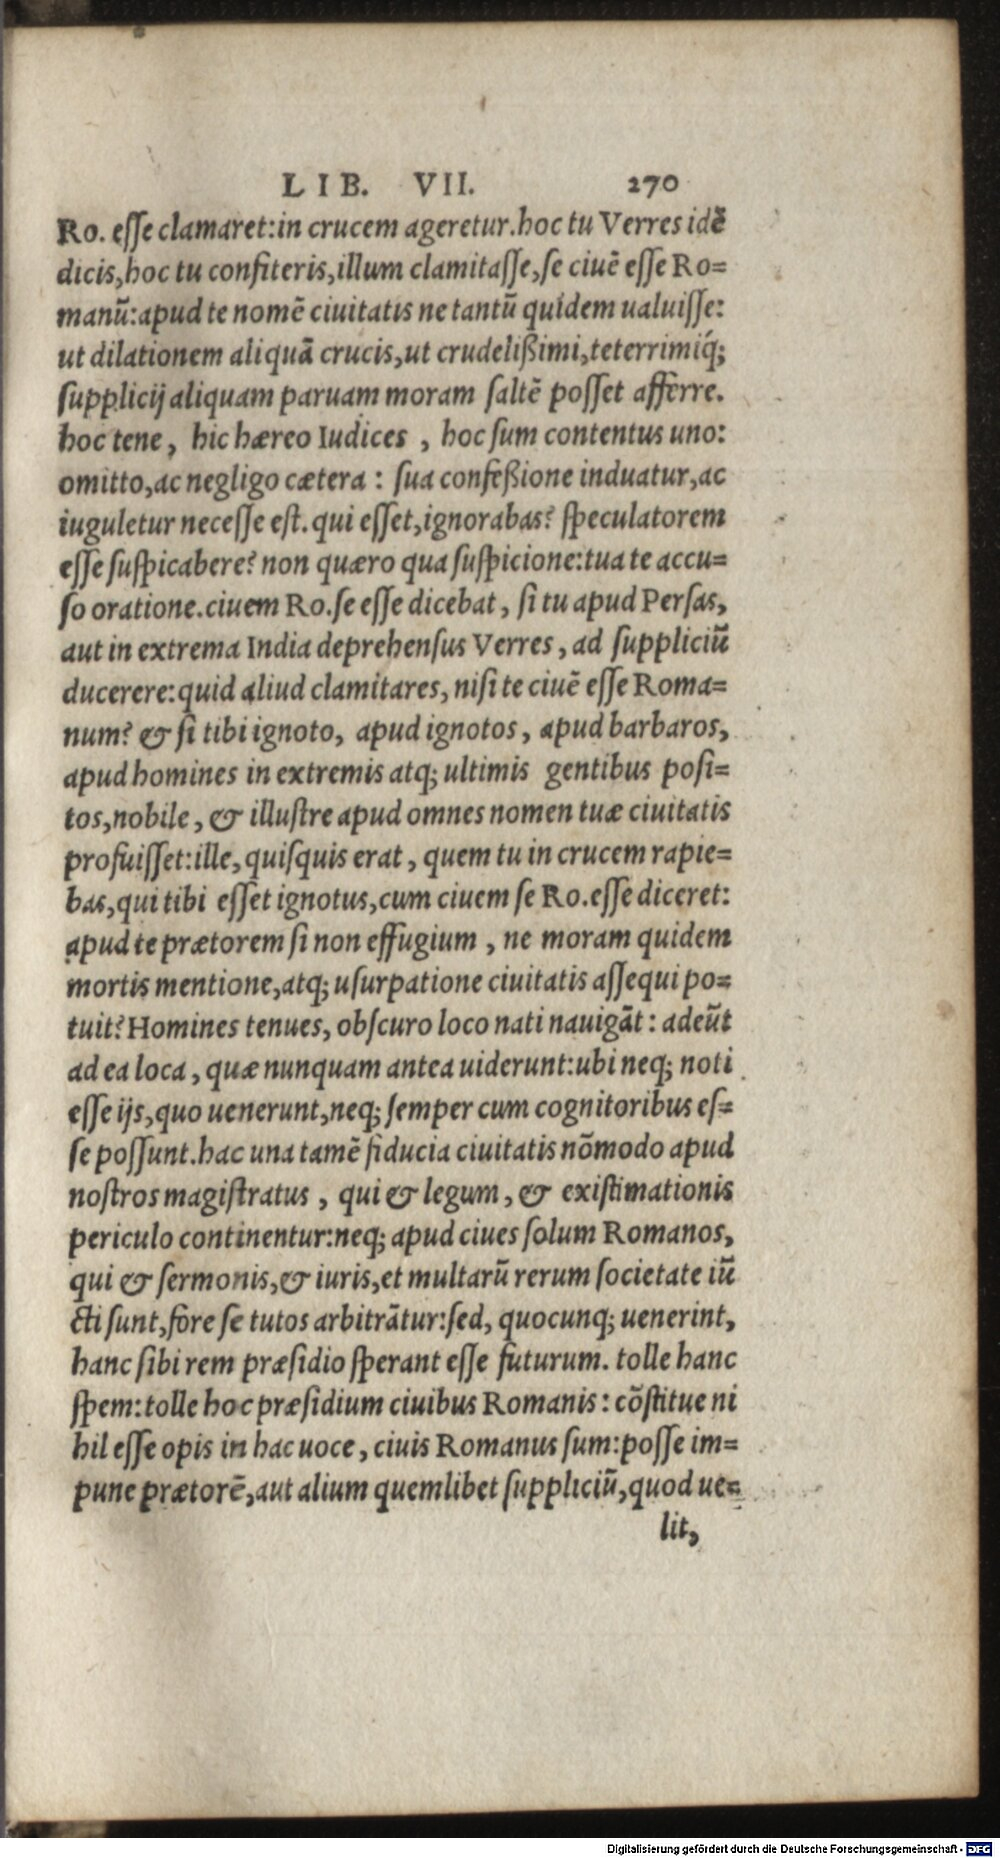 LIB. VII. 270
Ro. esse clamaret:in crucem ageretur.hoc tu Verres idẽ
dicis,hoc tu confiteris,illum clamitasse,se ciuẽ esse Ro=
manũ:apud te nomẽ ciuitatis ne tantũ quidem ualuisse:
ut dilationem aliquã crucis,ut crudelißimi,teterrimiq́;
supplicij aliquam paruam moram saltẽ posset afferre.
hoc tene, hic hæreo Iudices , hoc sum contentus uno:
omitto,ac negligo cætera : sua confeßione induatur,ac
iuguletur necesse est. qui esset,ignorabas? speculatorem
esse suspicabere? non quæro qua suspicione:tua te accu=
so oratione.ciuem Ro.se esse dicebat, si tu apud Persas,
aut in extrema India deprehensus Verres, ad suppliciũ
ducerere:quid aliud clamitares, nisi te ciuẽ esse Roma=
num? & si tibi ignoto, apud ignotos, apud barbaros,
apud homines in extremis atq; ultimis gentibus posi=
tos,nobile, & illustre apud omnes nomen tuæ ciuitatis
profuisset:ille, quisquis erat, quem tu in crucem rapie=
bas,qui tibi esset ignotus,cum ciuem se Ro.esse diceret:
apud te prætorem si non effugium , ne moram quidem
mortis mentione,atq; usurpatione ciuitatis assequi po=
tuit?Homines tenues, obscuro loco nati nauigãt : adeũt
ad ea loca, quæ nunquam antea uiderunt:ubi neq; noti
esse ijs,quo uenerunt,neq; semper cum cognitoribus es=
se possunt.hac una tamẽ fiducia ciuitatis nõmodo apud
nostros magistratus , qui & legum, & existimationis
periculo continentur:neq; apud ciues solum Romanos,
qui & sermonis,& iuris,et multarũ rerum societate iũ
cti sunt,fore se tutos arbitrãtur:sed, quocunq; uenerint,
hanc sibi rem præsidio sperant esse futurum. tolle hanc
spem:tolle hoc præsidium ciuibus Romanis : cõstitue ni
hil esse opis in hac uoce, ciuis Romanus sum:posse im=
pune prætorẽ,aut alium quemlibet suppliciũ,quod ue=
lit,
Digitalisierung gefördert durch die Deutsche Forschungsgemeinschaft - DFG